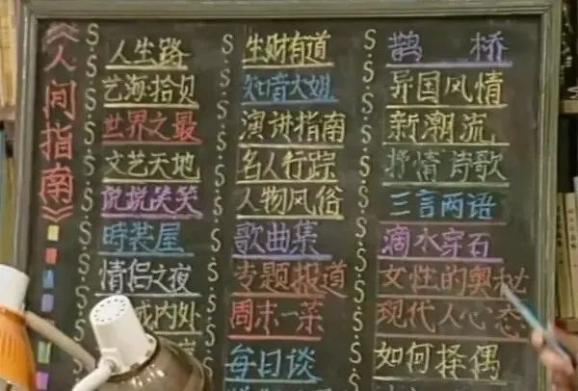 《人间指南》
人生路
艺海拾贝
世界之最
文艺天地
说说笑笑
時装屋
情侣之夜
城内外
生财有道
知音大姐
演讲指南
名人行踪
人物风俗
歌曲集
专题报道
周末一菜
每日谈
鹊桥
异国风情
新潮流
抒情诗歌
三言两语
滴水穿石
女性的奥秘
现代人心态
如何择偶